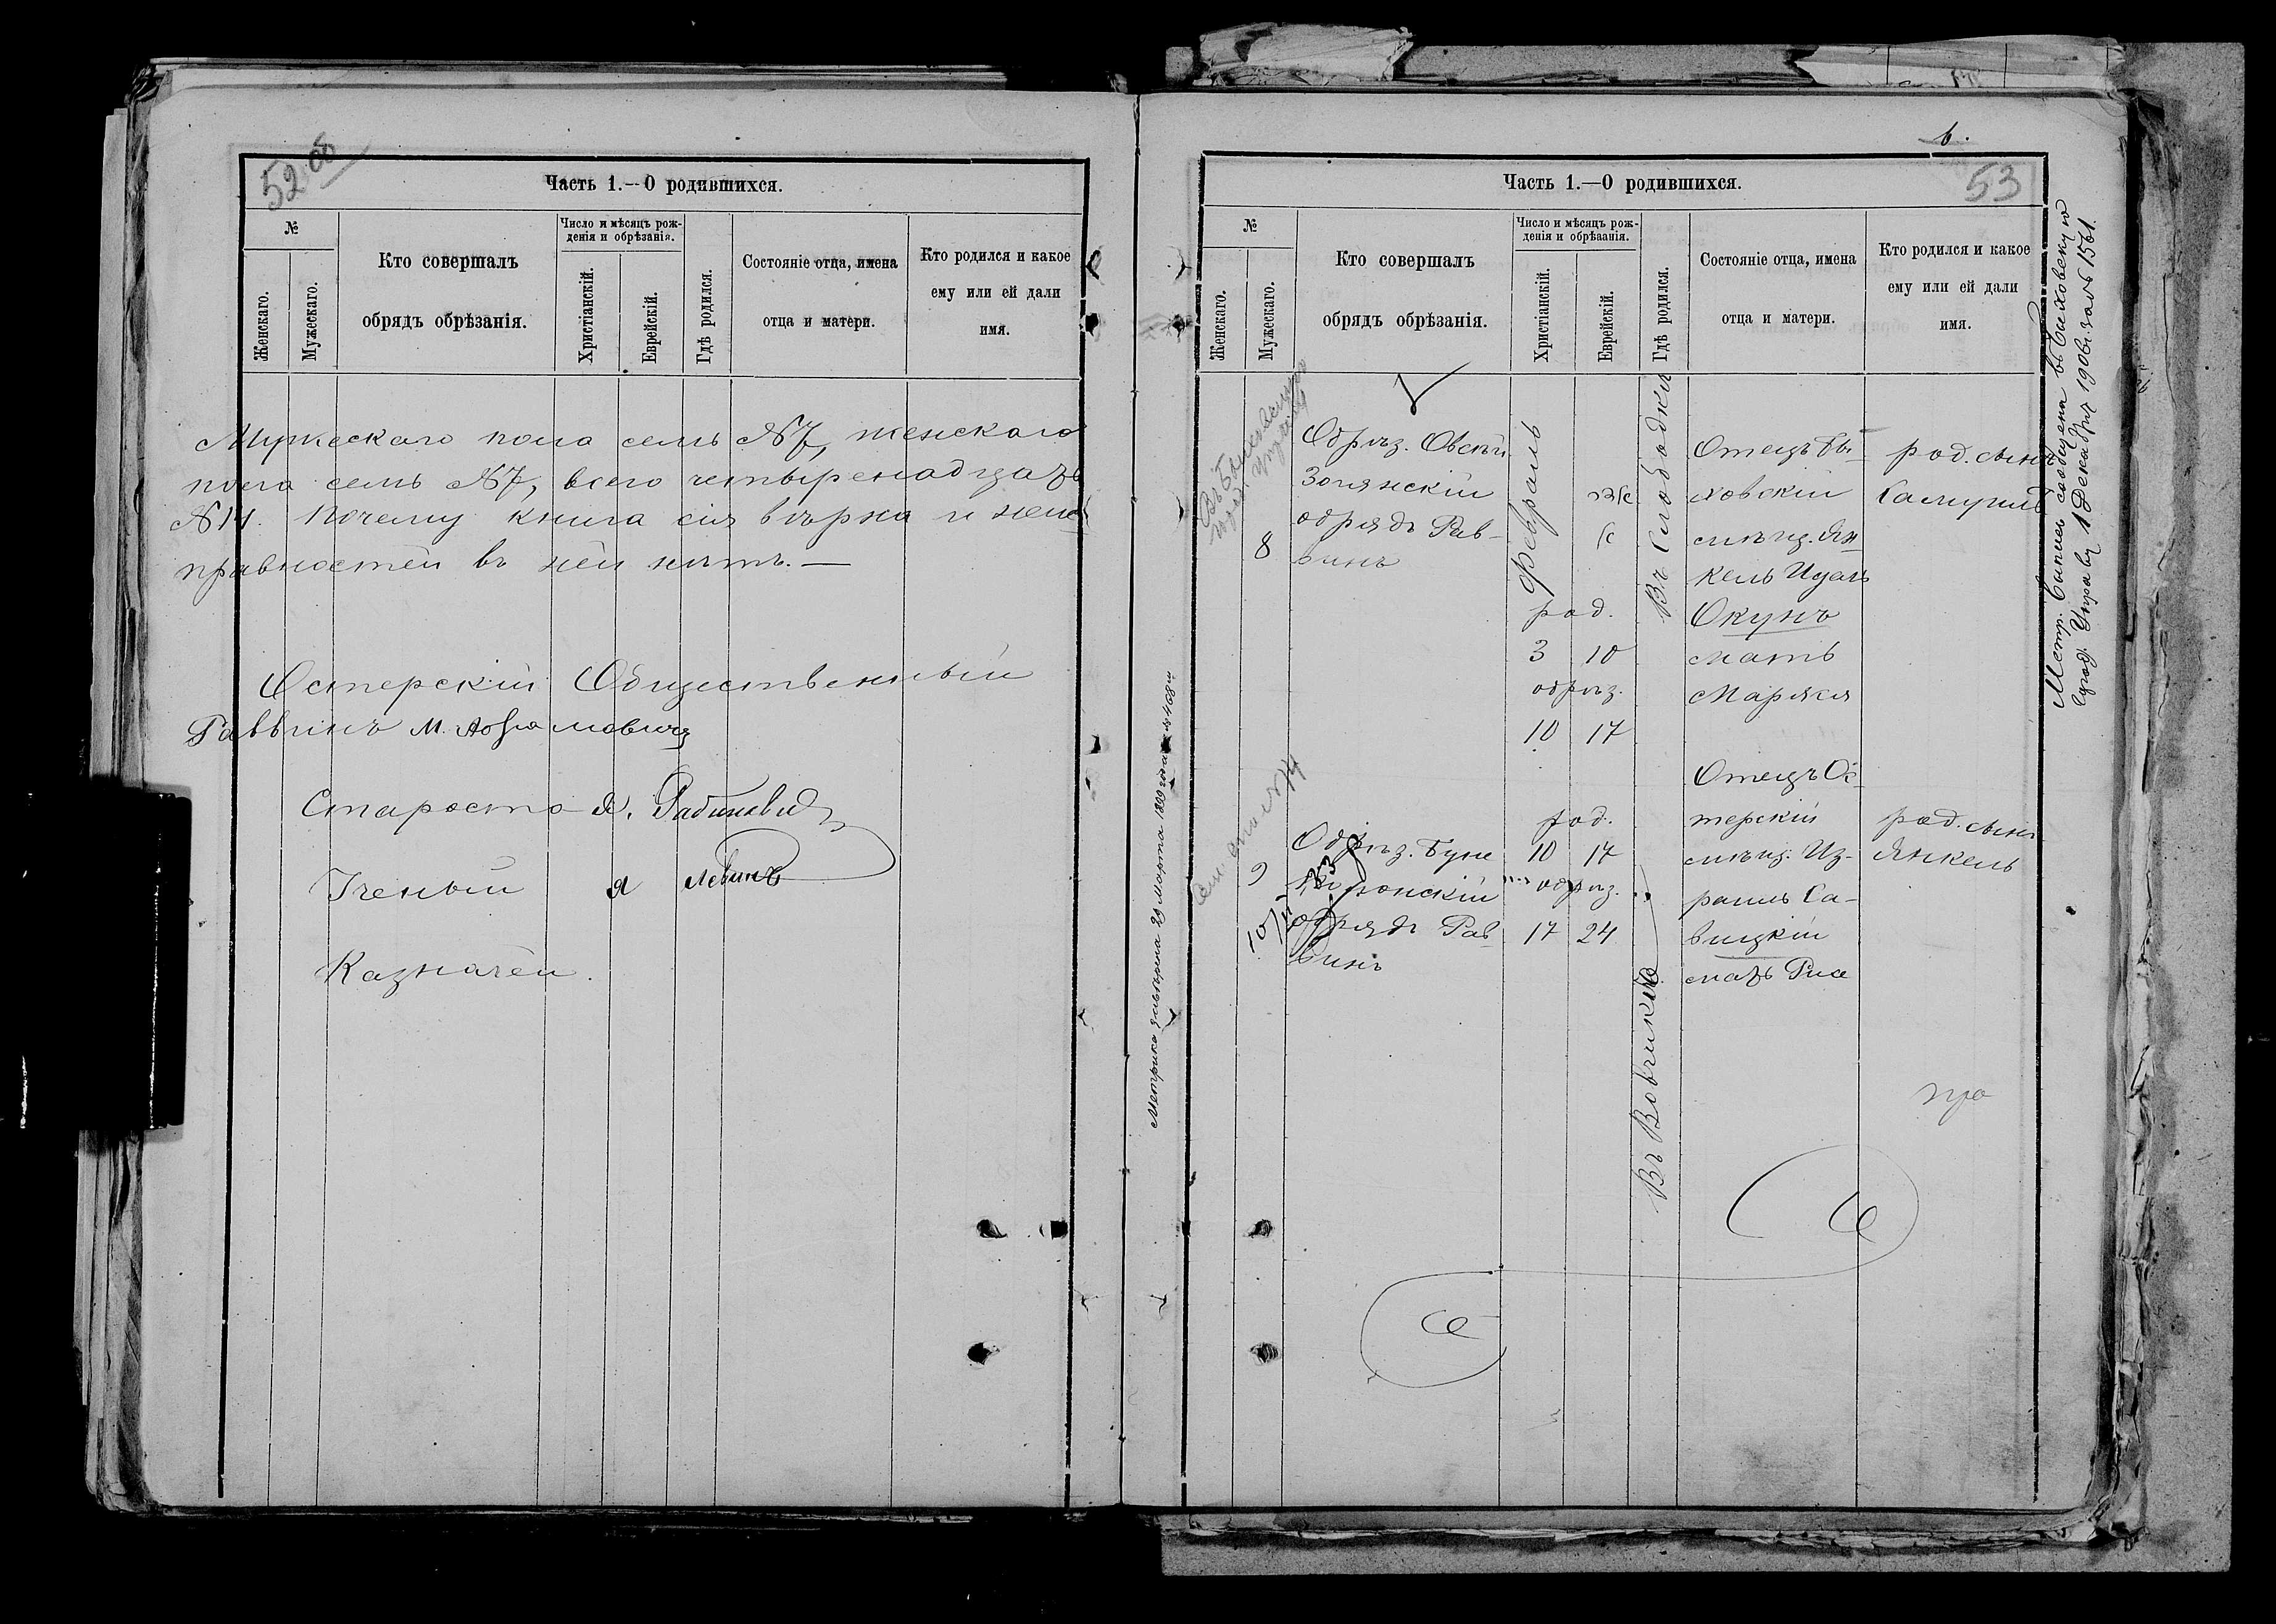 52 об
Часть 1.—О родившихся.
№
Женскаго.
Мужескаго.
Кто совершалъ
обрядъ обрѣзанія.
Число и мѣсяцъ рож-
денія и обрѣзанія.
Христіанскій.
Еврейскій.
Гдѣ родился.
Состояніе отца, имена
отца и матери.
Кто родился и какое
ему или ей дали
имя.
Мужескаго пола семь №7, женскаго
пола семь №7, всего четыренадцать
№14. Почему книга сія вѣрна и неис-
правностей въ ней нѣтъ. —
Остерскій Общественный
Раввинъ М. Абрамовичъ
Староста Я. Рабиновичъ
Ученый Я Левинъ
Казначей.
Метрика 29 марта 1899 года № 468
6.
53
Часть 1.—О родившихся.
№
Женскаго.
Мужескаго.
Кто совершалъ
обрядъ обрѣзанія.
Число и мѣсяцъ рож-
денія и обрѣзанія.
Христіанскій.
Еврейскій.
Гдѣ родился.
Состояніе отца, имена
отца и матери.
Кто родился и какое
ему или ей дали
имя.
8
Обрѣз. Овсѣй
обрядъ Рав-
винъ
Февраль
род.
3 10
обрѣз.
10 17
Въ Слободкѣ
Отецъ Бы-
ховскій
мѣщ. Ян-
кель
Окунь
мать
Маряся
род. сынъ
Самуилъ
9
Обрѣз.
обрядъ Рав
винъ
род.
10 17
обрѣз.
17 24
Отецъ Ос-
терскій
мѣщ. Из-
раиль Са-
вицкій
мать Рися
род. сынъ
Янкель
Метр. выпись сообщена въ Быховскую
Управу 1 Декабря 1906 г за № 1561.